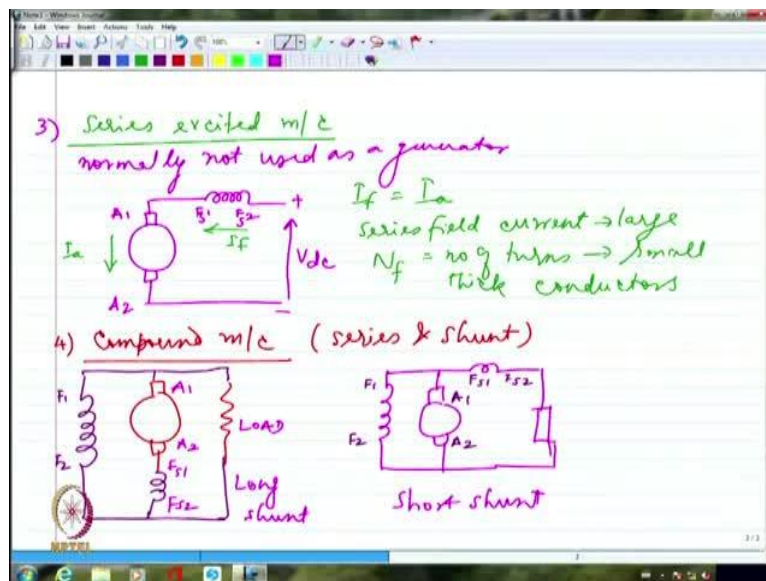 Note1 - Windows Journal
File Edit View Insert Actions Tools Help
100%
3) Series excited m/c
normally not used as a generator
A1
FS1 FS2
+
If = Ia
Ia
If
Vdc
series field current → large
Nf = no of turns → small
thick conductors
A2
-
4) Compound m/c (series & shunt)
F1
A1
F1
A1
FS1 FS2
LOAD
F2
A2
F2
A2
FS1
FS2
Long
shunt
Short shunt
NPTEL
3 / 3
3